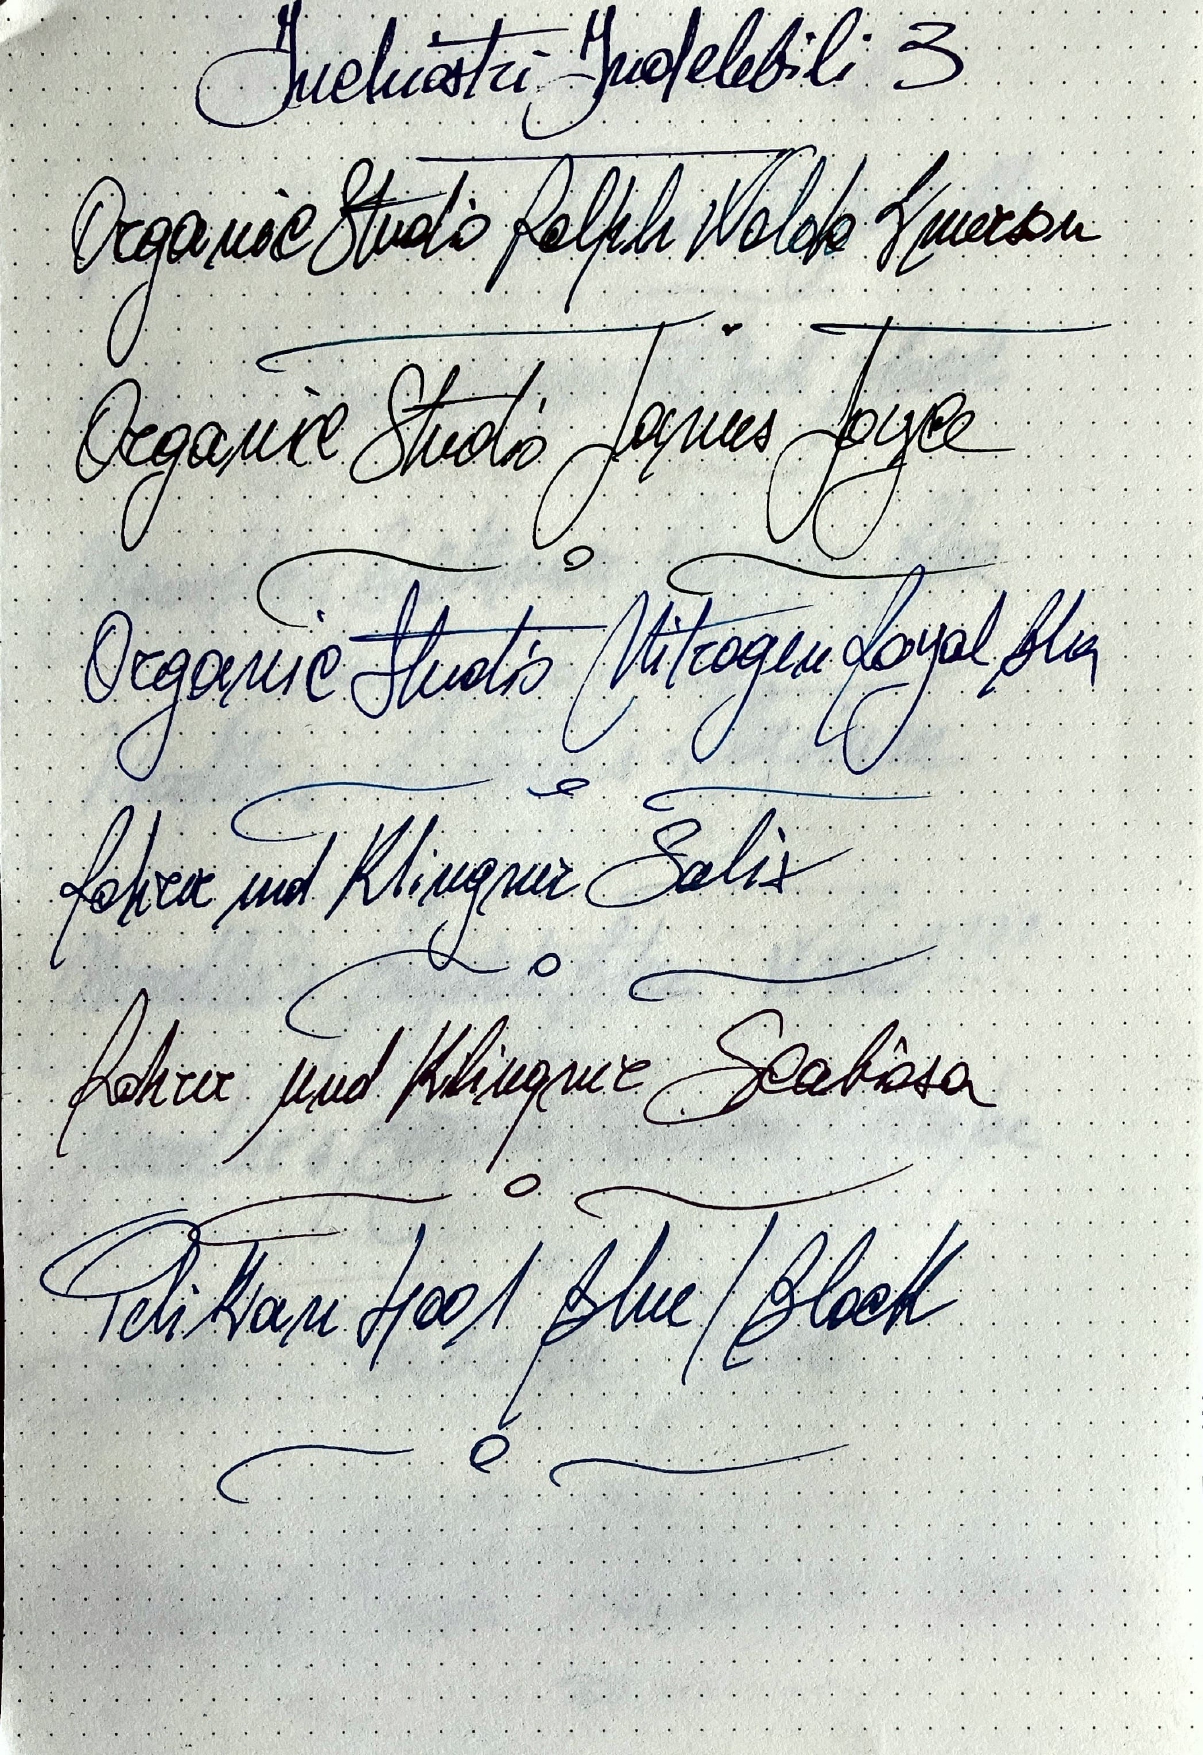 Inchiostri Indelebili 3
Organic Studio Ralph Waldo Emerson
Organic Studio James Joyce
Organic Studio Nitrogen Royal Blu
Rohrer und Klingner Salix
Rohrer und Klingner Scabiosa
Pelikan 4001 Blue/Black